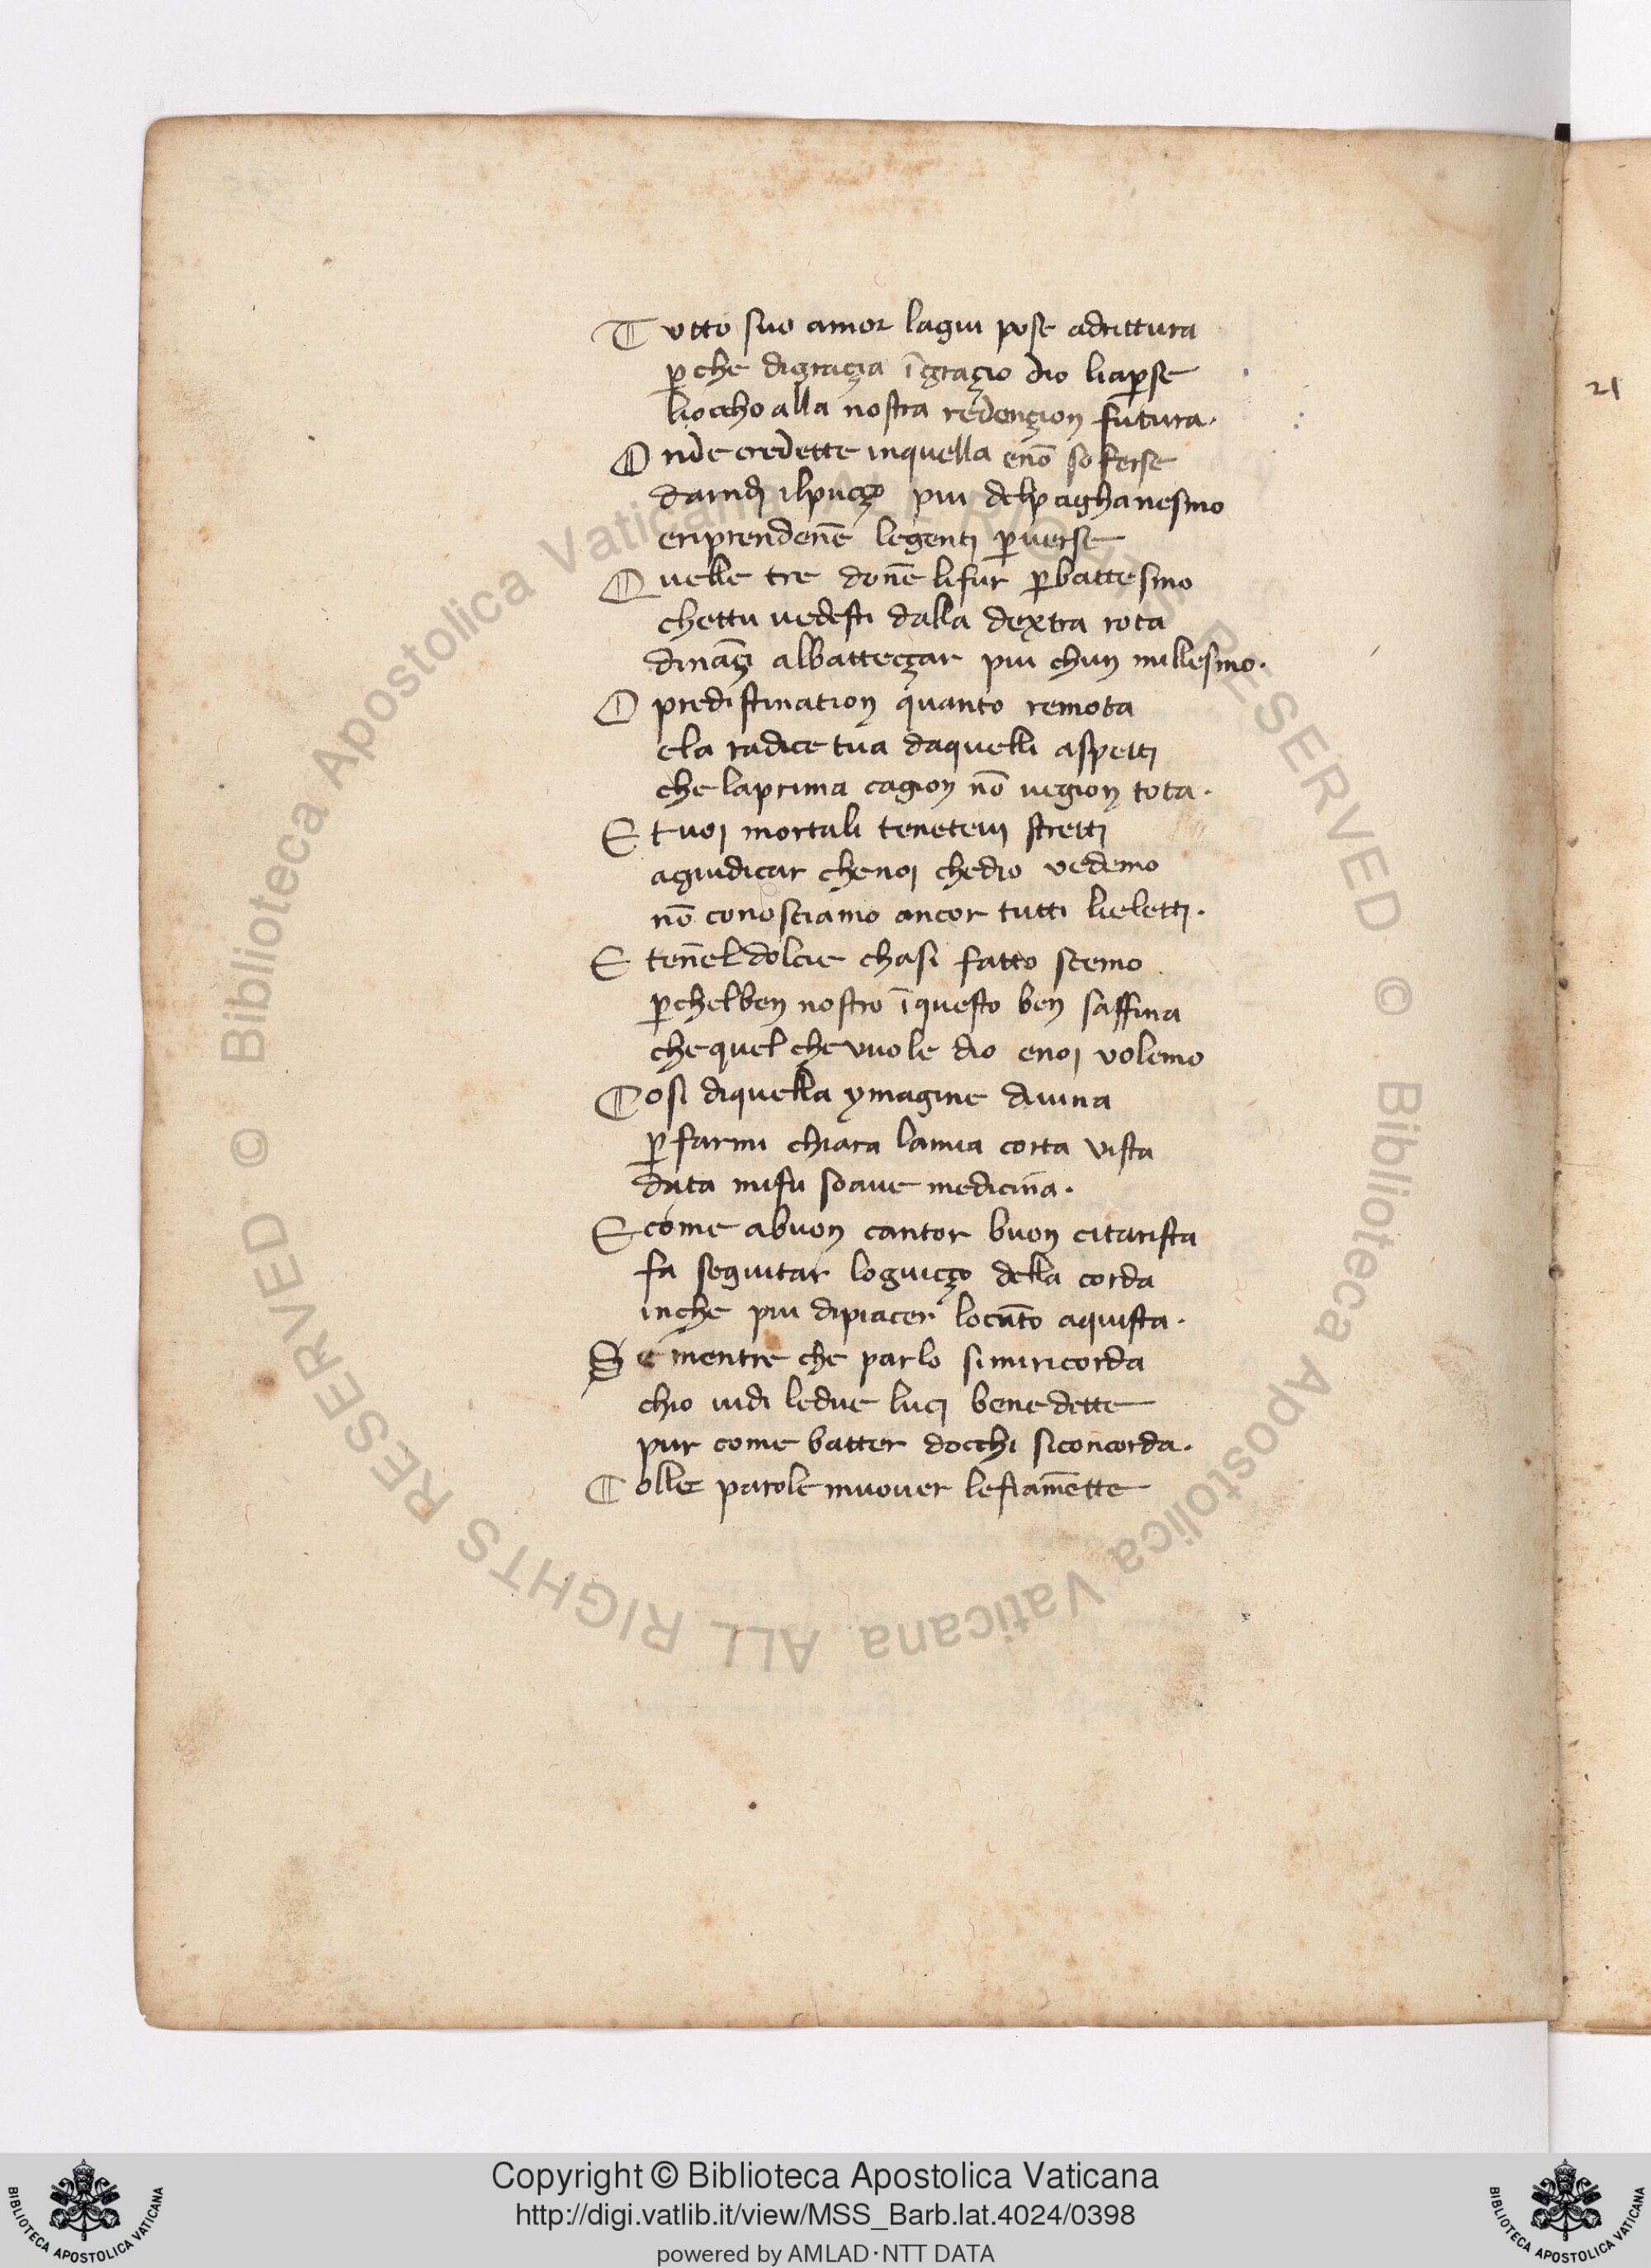 Tutto suo amor lagiu pose adrittura
p̱ che digraçia ī graçio dio liap̱se
liocchio alla nostra redençion futura.
Onde credette inquella enō soferse
daindi ilpuçço piu delpaghanesmo
eriprendenē legenti p̱uerse
Quelle tre donē lifur p̱battesmo
chettu uedesti dalla dextra rota
dināçi albatteççar piu chun millesmo.
O predistination quanto remota
ela radice tua daquelli aspetti
che laprima cagion nō uegion tota.
E tuoi mortali teneteui stretti
agiudicar chenoi chedio vedemo
nō conosciamo ancor tutti lieletti.
E tenēl dolcie chasi fatto scemo
p̱chelben nostro ī questo ben saffina
chequel che vuole dio enoi volemo
Cosi diquella ymagine diuina
p̱ farmi chiara lamia corta vista
data mifu soaue medicina.
E come abuon cantor buon citarista
fa seguitar loguiçço della corda
inche piu dipiacer locāto aquista.
Se mentre che parlo simiricorda
chio uidi ledue luci benedette
pur come batter docchi siconcorda.
Colle parole muouer lefiamētte
21
© Biblioteca Apostolica Vaticana ALL RIGHTS RESERVED
© Biblioteca Apostolica Vaticana ALL RIGHTS RESERVED
Copyright © Biblioteca Apostolica Vaticana
http://digi.vatlib.it/view/MSS_Barb.lat.4024/0398
powered by AMLAD·NTT DATA
BIBLIOTECA APOSTOLICA VATICANA
BIBLIOTECA APOSTOLICA VATICANA